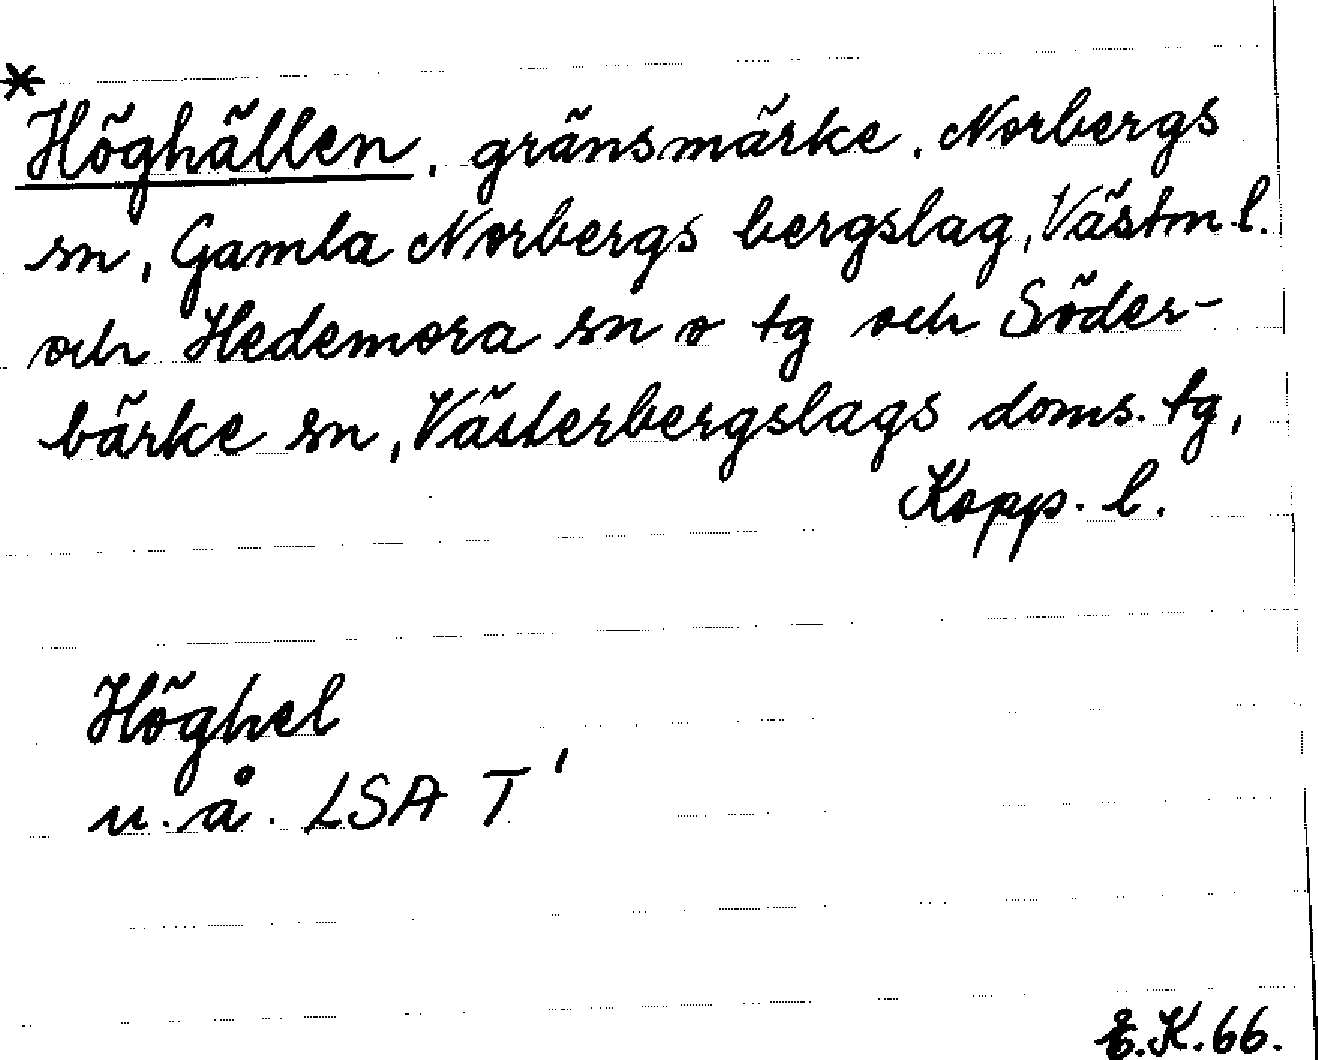 *
Höghällen, gränsmärke, Norbergs
sn, Gamla Norbergs bergslag, Västm. l.
och Hedemora sn o tg och Söder-
bärke sn, Västerbergslags doms. tg,
Kopp. l.
Höghel
u. å. LSA T'
E.K.66.